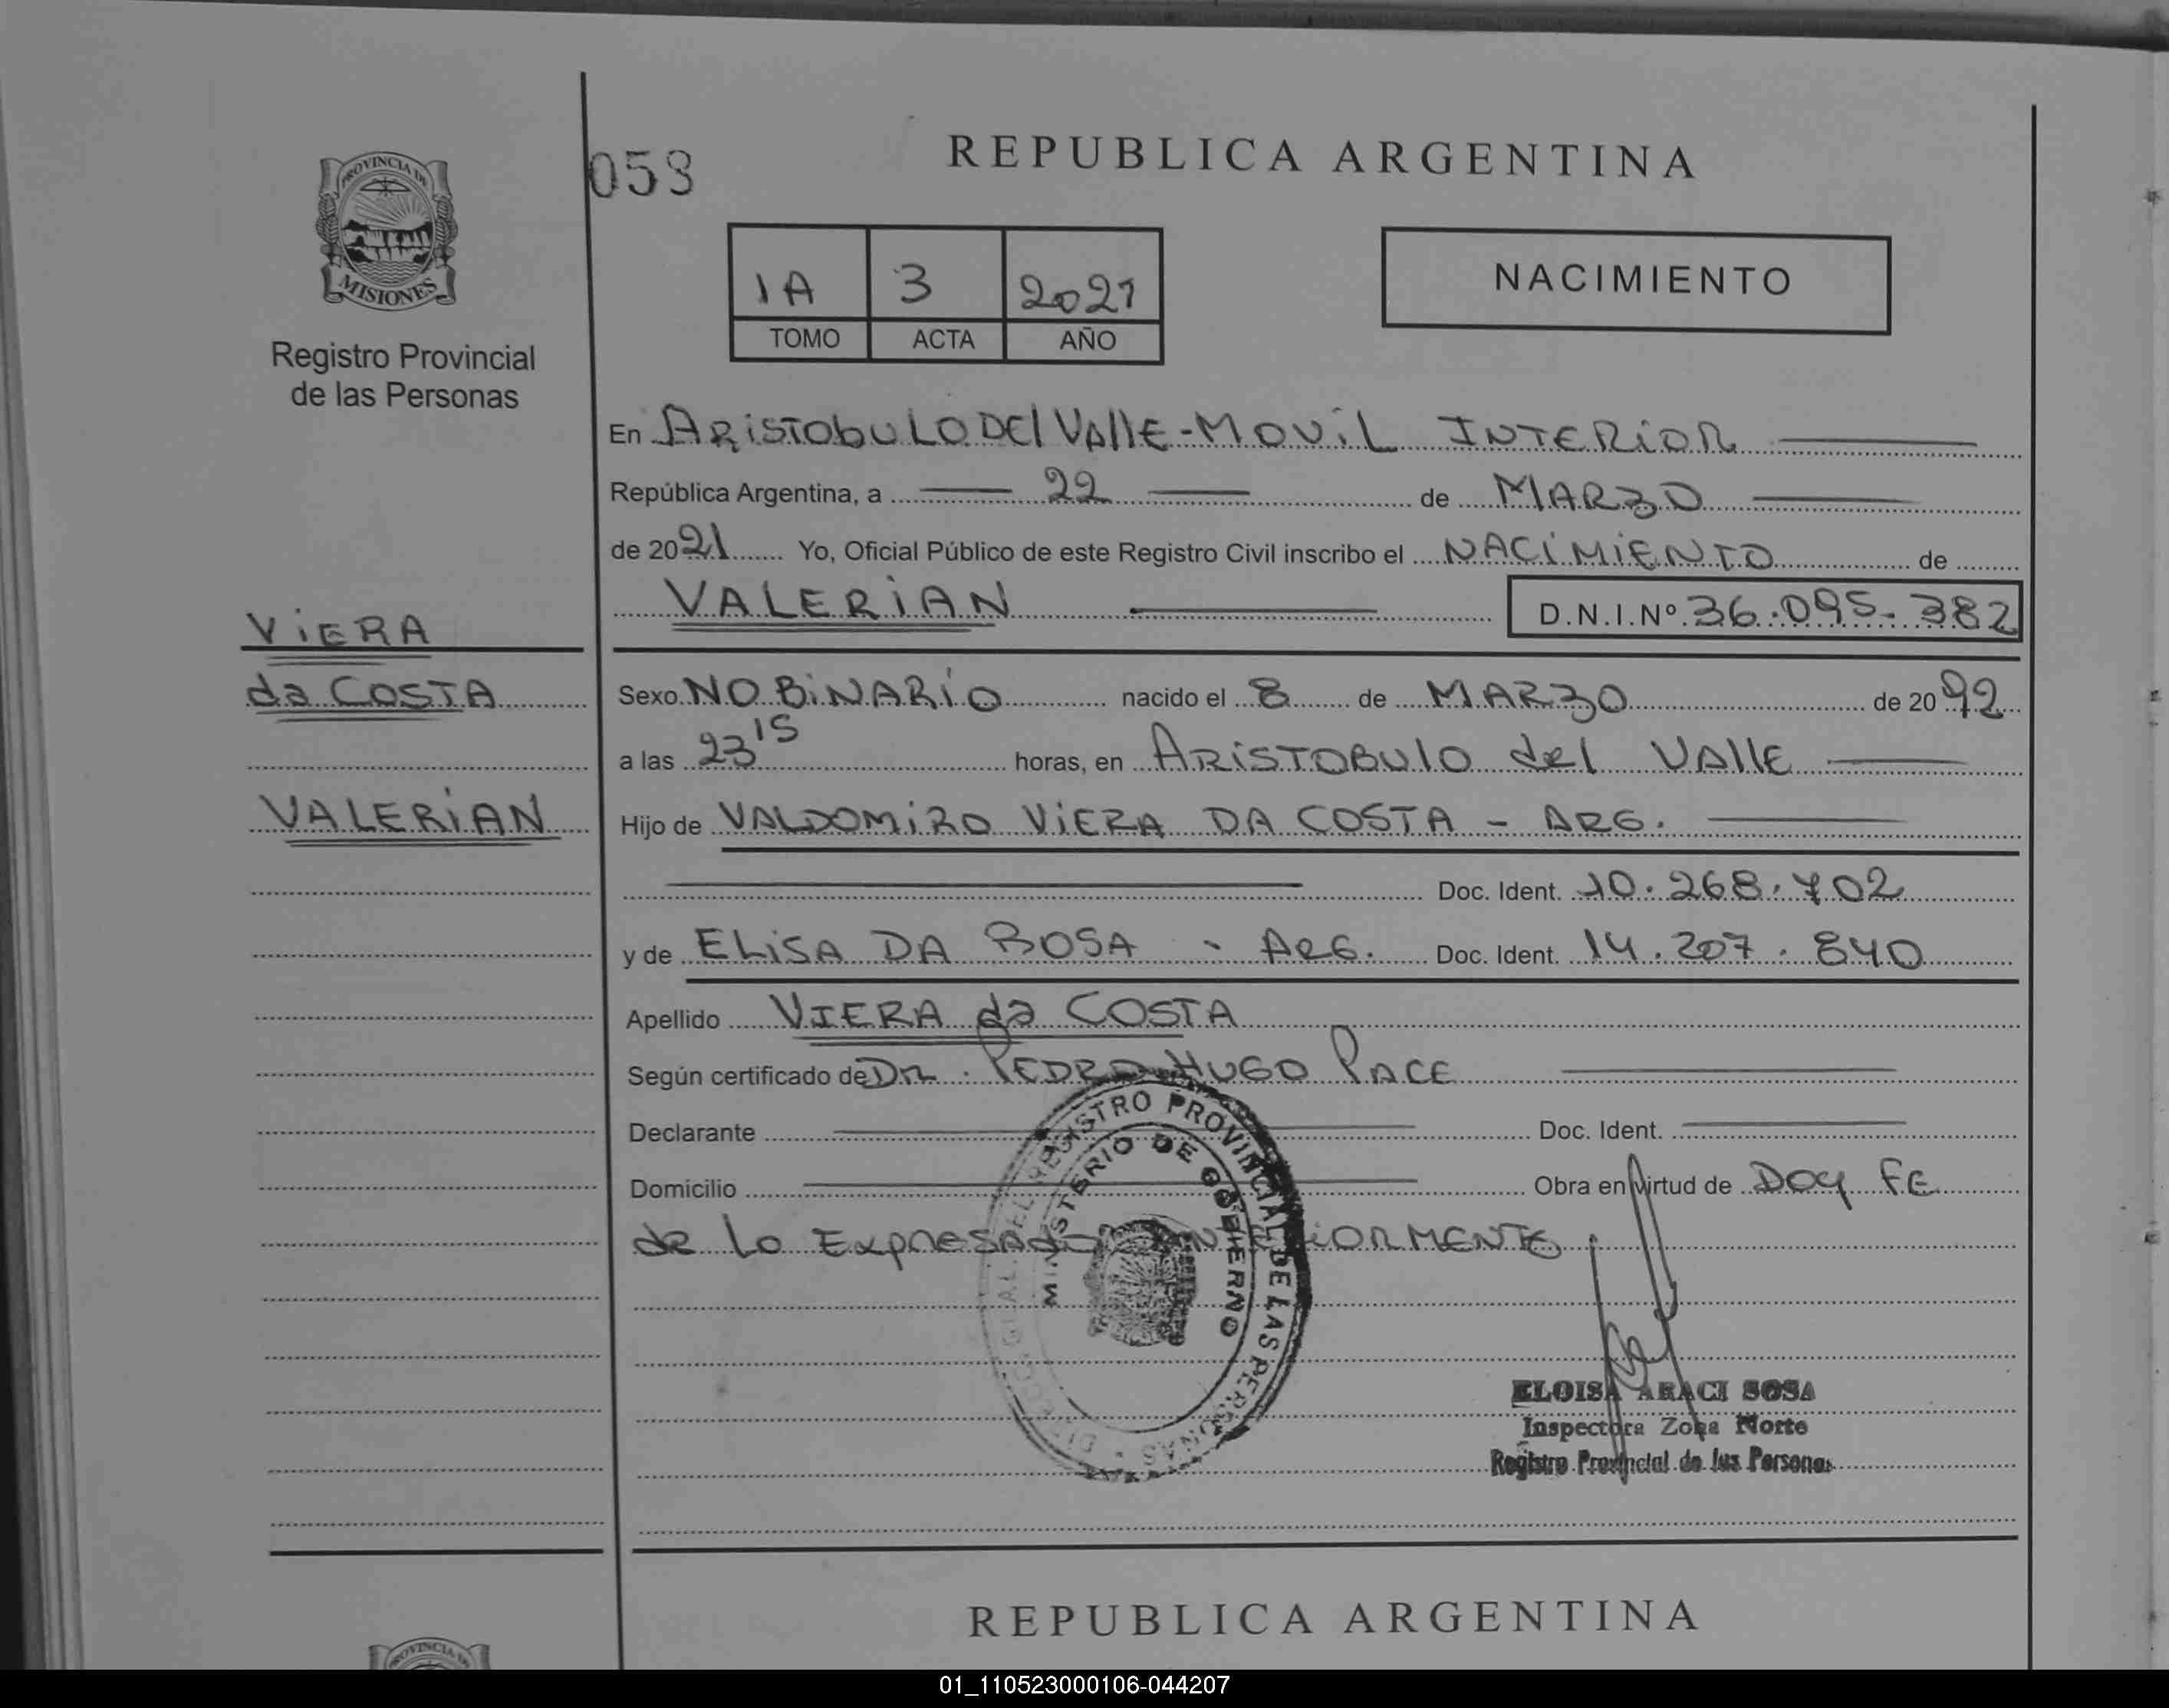 PROVINCIA DE
MISIONES
Registro Provincial
de las Personas
058
REPUBLICA ARGENTINA
1A 3 2021
TOMO ACTA AÑO
NACIMIENTO
En ARISTOBULO DEL VALLE - MOVIL INTERIOR
República Argentina, a 22 de MARZO
de 2021 Yo, Oficial Público de este Registro Civil inscribo el NACIMIENTO de
VALERIAN D.N.I.Nº 36.095.382
VIERA
da COSTA
VALERIAN
Sexo NO BINARIO nacido el 8 de MARZO de 20 92
a las 23 15 horas, en ARISTOBULO del VALLE
Hijo de VALDOMIRO VIERA DA COSTA - ARG.
Doc. Ident. 10.268.702
y de ELISA DA ROSA - ARG. Doc. Ident. 14.207.840
Apellido VIERA da COSTA
Según certificado de DR. PEDRO HUGO PACE
Declarante Doc. Ident.
Domicilio Obra en virtud de DOY FE
de lo EXPRESADO ANTERIORMENTE
REGISTRO PROVINCIAL DE LAS PERSONAS
MINISTERIO DE GOBIERNO
ELOISA ARACI SOSA
Inspectora Zona Norte
Registro Provincial de las Personas
REPUBLICA ARGENTINA
PROVINCIA DE
01_110523000106-044207